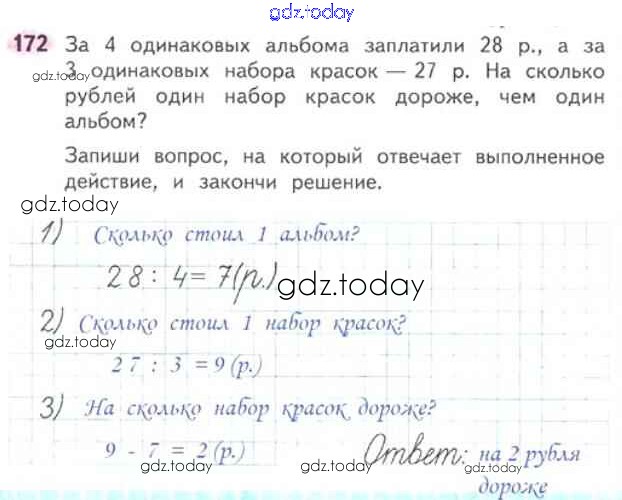 gdz.today
172 За 4 одинаковых альбома заплатили 28 р., а за
gdz.today
3 одинаковых набора красок — 27 р. На сколько
рублей один набор красок дороже, чем один
gdz.today
альбом?
Запиши вопрос, на который отвечает выполненное
действие, и закончи решение.
gdz.today
1) Сколько стоил 1 альбом?
28 : 4 = 7(р.)
gdz.today
2) Сколько стоил 1 набор красок?
gdz.today
27 : 3 = 9 (р.)
3) На сколько набор красок дороже?
9 - 7 = 2 (р.) Ответ: на 2 рубля
gdz.today gdz.today
дороже